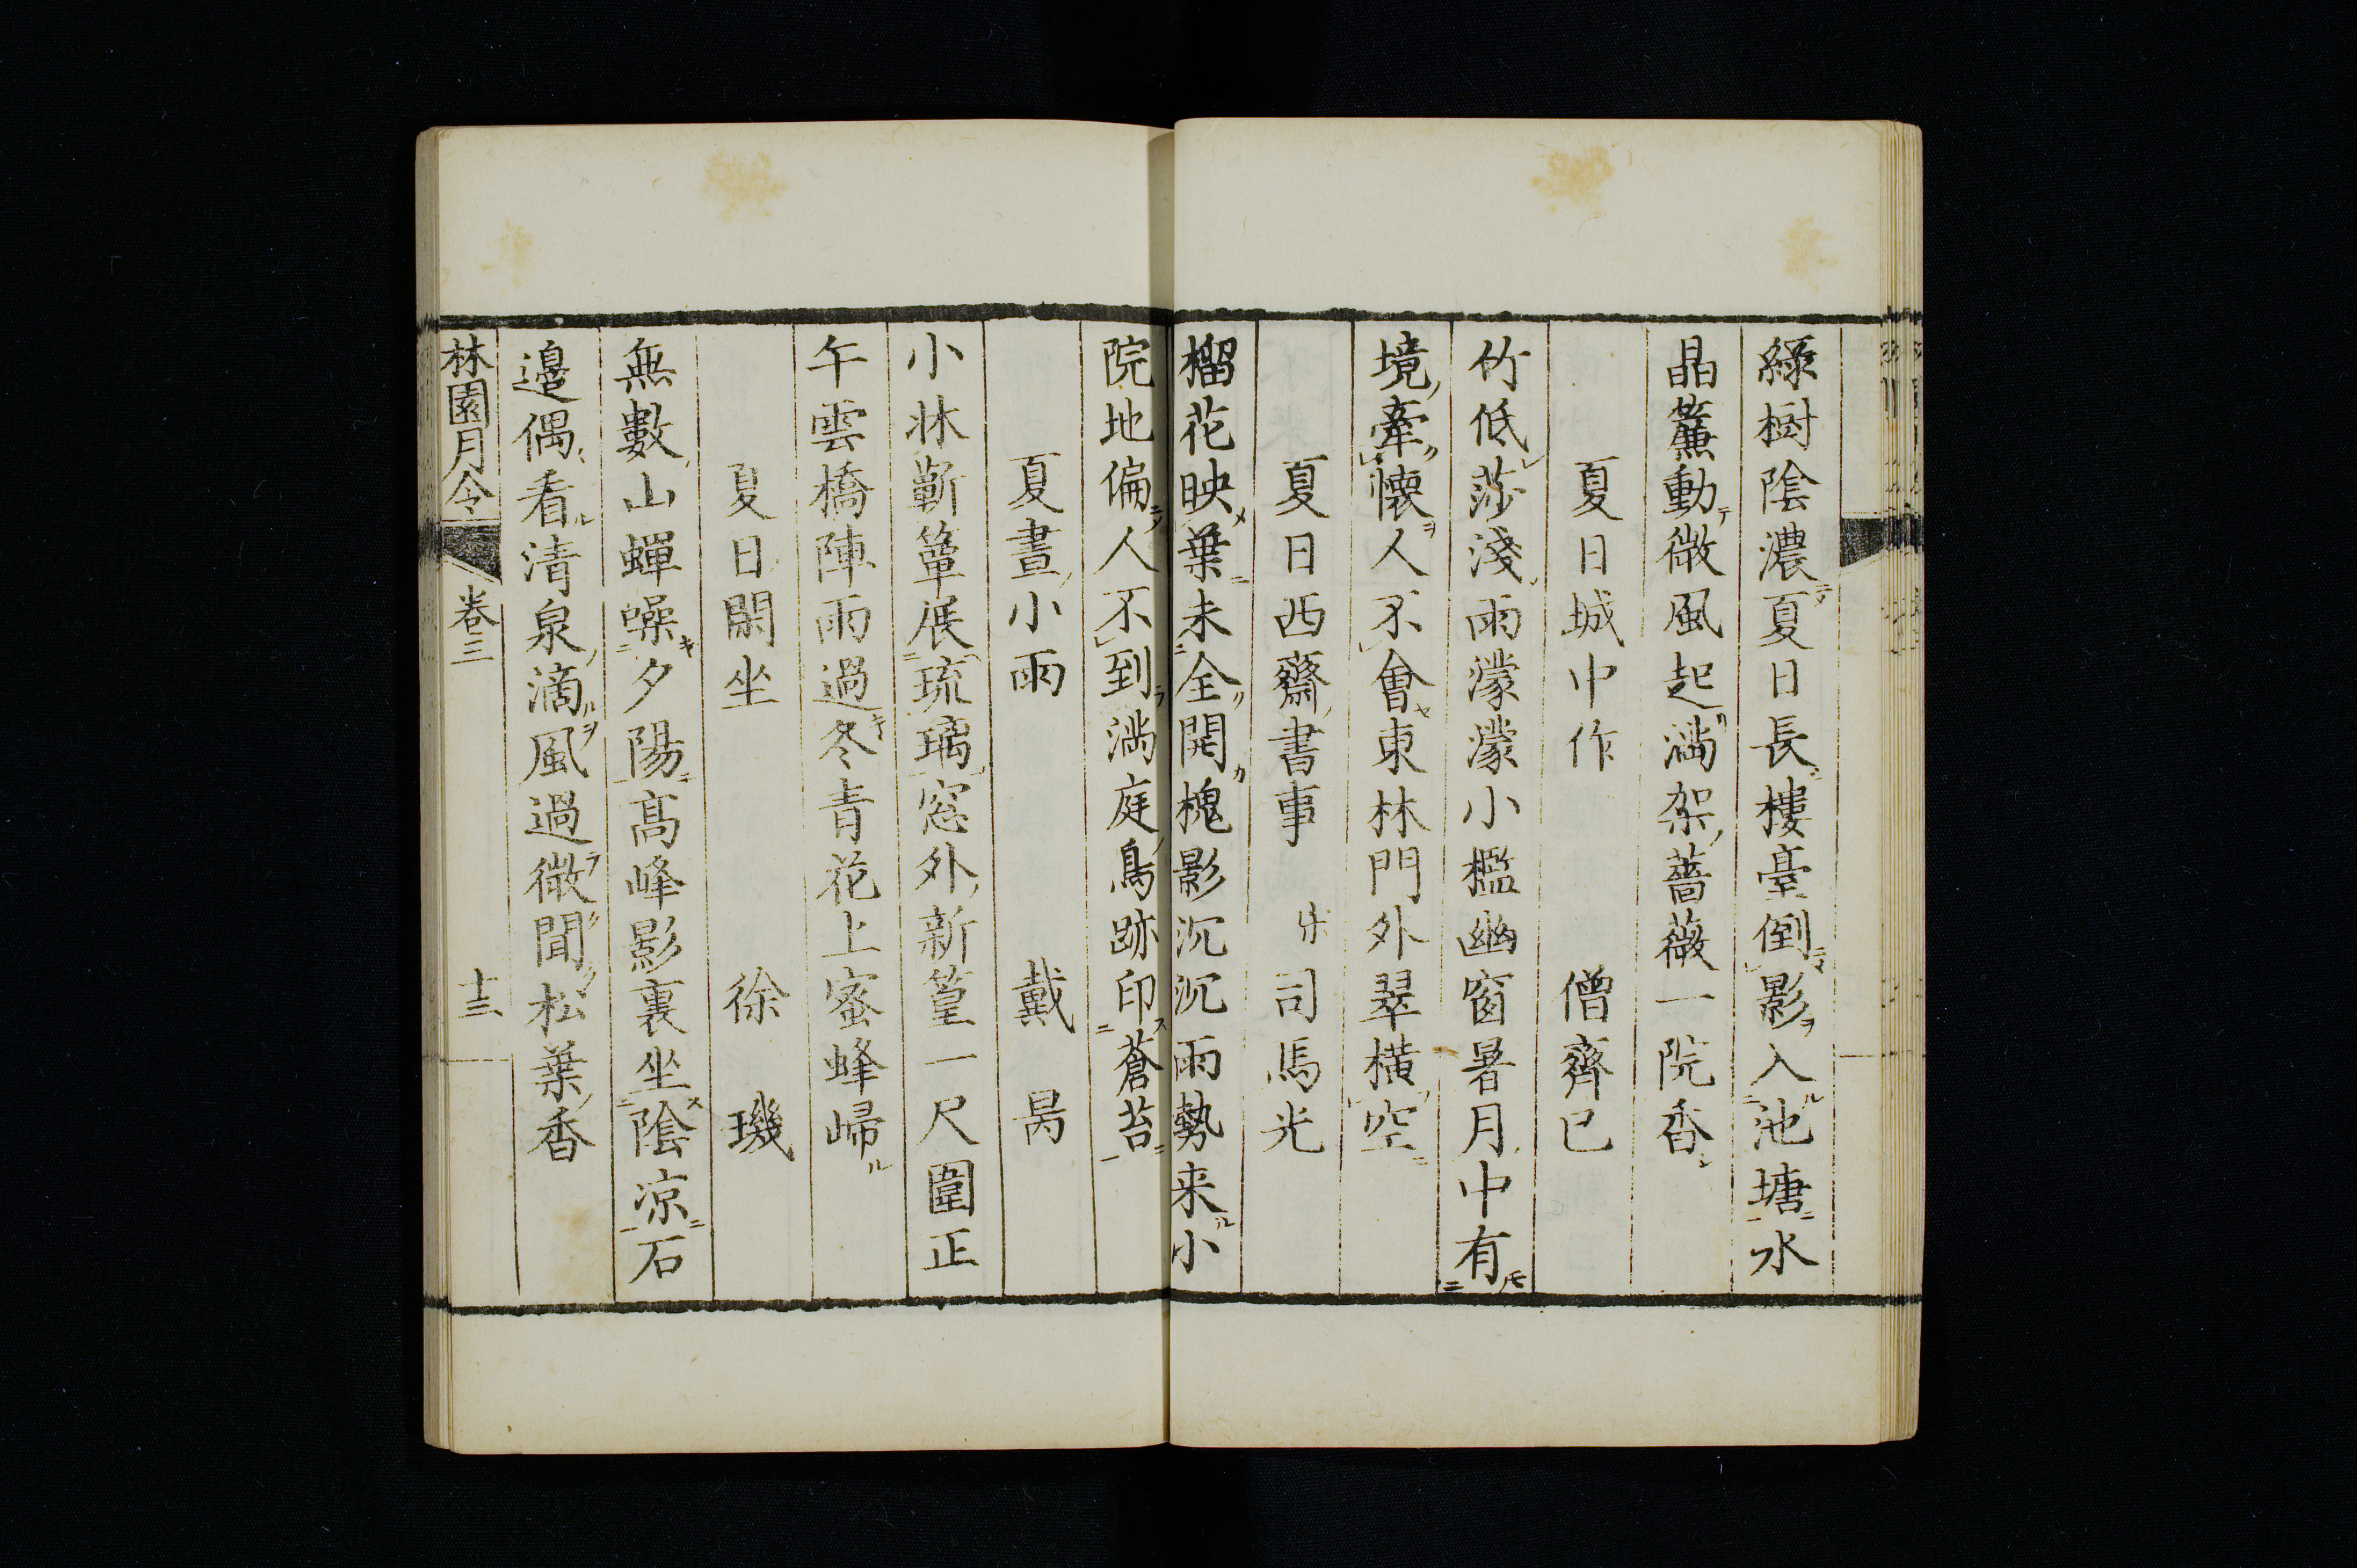 綠樹陰濃夏日長樓臺倒影入池塘水
晶簾動微風起滿架薔薇一院香
夏日城中作 僧齊已
竹低莎淺雨濛濛小檻幽窗暑月中有
境牽懷人不會東林門外翠橫空
夏日西齋書事 宋 司馬光
榴花映葉未全開槐影沉沉雨勢来小
院地偏人不到滿庭鳥跡印蒼苔
夏晝小雨 戴昺
小牀蘄簟展琉璃窓外新篁一尺圍正
午雲橋陣雨過冬青花上蜜蜂歸
夏日閑坐 徐璣
無數山蟬噪夕陽高峰影裏坐陰凉石
邉偶看清泉滴風過微聞松葉香
林園月令 卷三 十三